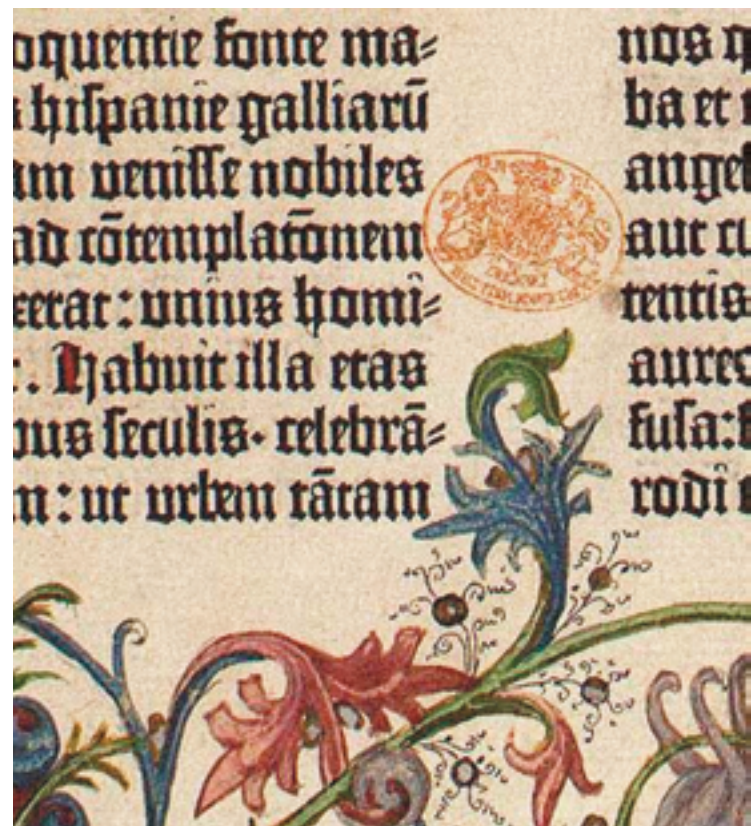 oquentie fonte ma⸗
hiſpanie galliarū
am veniſſe nobiles
ad cōtemplatōnem
xerat: unius homi⸗
. Habuit illa etas
bus ſeculis· celebrā⸗
m: ut urbem tātam
nos q
ba et
angel
aut cu
tentis
aureo
fuſa:
rodi